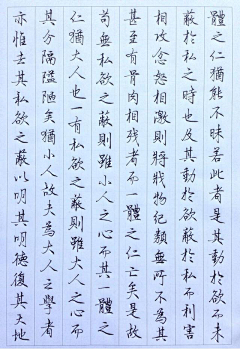 體之仁猶能不昧若此者是其動於欲而未
蔽於私之時也及其動於欲蔽於私而利害
相攻忿怒相激則將戕物圮類無所不為其
甚至有骨肉相殘者而一體之仁亡矣是故
苟無私欲之蔽則雖小人之心而其一體之
仁猶大人也一有私欲之蔽則雖大人之心而
其分隔隘陋矣猶小人故夫為大人之學者
亦惟去其私欲之蔽以明其明德復其天地